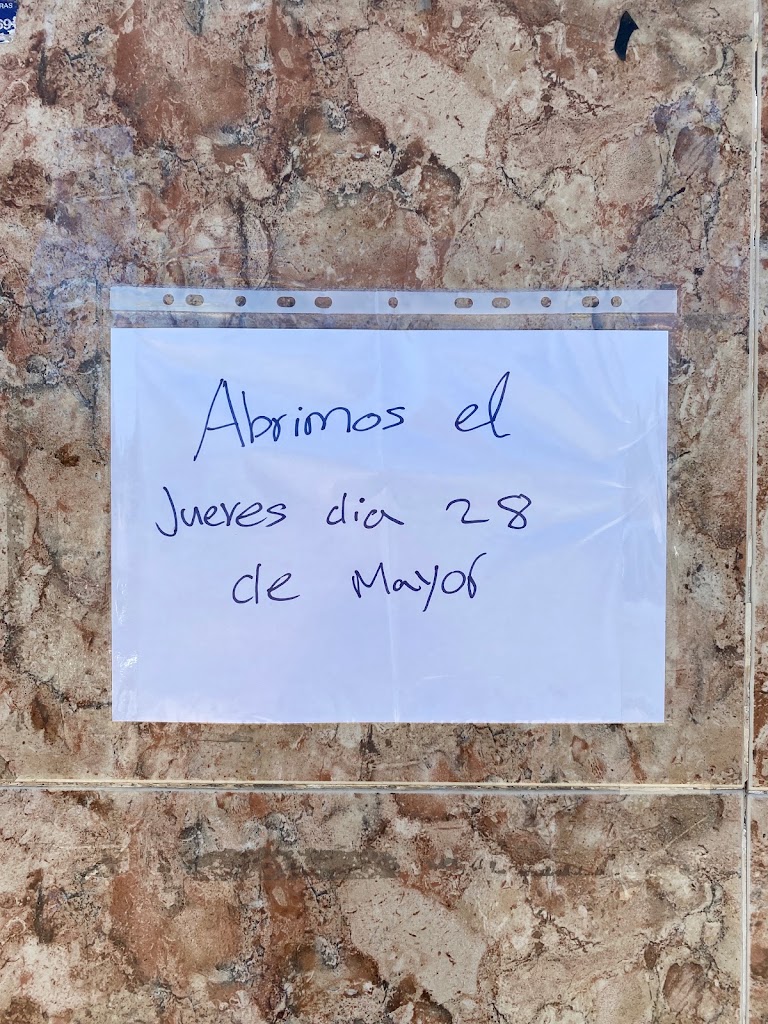 RAS
69
Abrimos el
Jueves dia 28
de Mayo